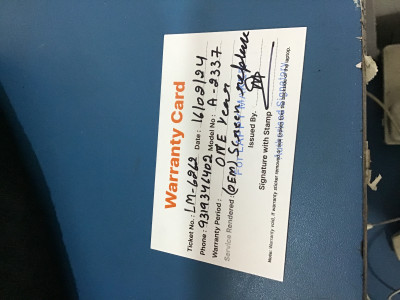 Warranty Card
Ticket No.: LM-6262 Date: 16/02/24
Phone: 9319346402 Model No: A-2337
Warranty Period: ONE Year
Service Rendered: (OEM) Screen replace
Issued By.
Signature with Stamp
Note: Warranty void, if warranty sticker removed